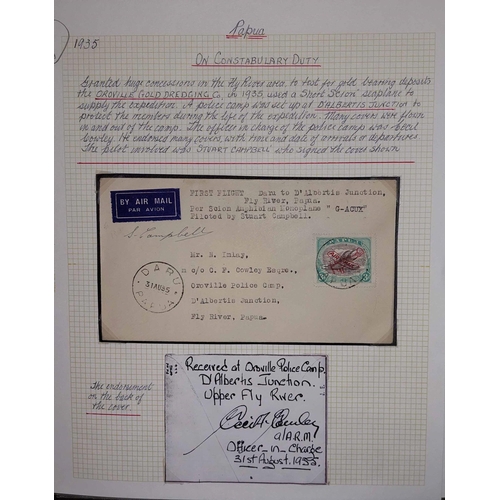 Papua
1935
ON CONSTABULARY DUTY
Granted huge concessions in the Fly River area to test for gold bearing deposits
the OROVILLE GOLD DREDGING Co. in 1935, used a Short 'Scion' seaplane to
supply the expedition. A police camp was set up at D'ALBERTIS JUNCTION to
protect the members during the life of the expedition. Many covers were flown
in and out of the camp. The officer in charge of the police camp was Cecil
Cowley. He endorsed many covers, with time and date of arrivals or departures
The pilot involved was 'STUART CAMPBELL' who signed the cover shown
BY AIR MAIL
PAR AVION
FIRST FLIGHT Daru to D'Albertis Junction,
Fly River, Papua.
Per Scion Amphibian Monoplane "G-ACUX"
Piloted by Stuart Campbell.
S. Campbell
DARU
31AU35
PAPUA
Mr. R. Imlay,
c/o C. F. Cowley Esqre.,
Oroville Police Camp,
D'Albertis Junction,
Fly River, Papua.
The endorsement
on the back of
the cover.
Received at Oroville Police Camp.
D'Albertis Junction.
Upper Fly River.
Cecil F. Cowley
a/A.R.M.
Officer-in-Charge
31st August. 1935.